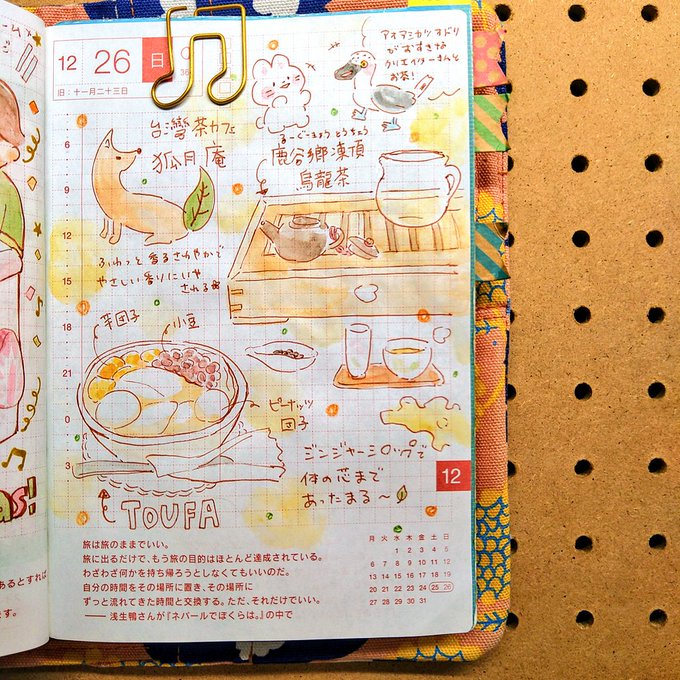 12
26
日
旧：十一月二十三日
アオアシカツオドリ
がおすきな
クリエイターさんと
お茶！
台灣茶カフェ
狐月庵
るーぐーきょう とうちょう
鹿谷郷凍頂
烏龍茶
ふわっと香るさわやかで
やさしい香りにいや
される
芋団子
小豆
ピーナッツ
団子
ジンジャーシロップで
体の芯まで
あったまる〜
TOUFA
6
9
12
15
18
21
0
3
12
旅は旅のままでいい。
旅に出るだけで、もう旅の目的はほとんど達成されている。
わざわざ何かを持ち帰ろうとしなくてもいいのだ。
自分の時間をその場所に置き、その場所に
ずっと流れてきた時間と交換する。ただ、それだけでいい。
――浅生鴨さんが『ネパールでぼくらは。』の中で
月 火 水 木 金 土 日
1 2 3 4 5
6 7 8 9 10 11 12
13 14 15 16 17 18 19
20 21 22 23 24 25 26
27 28 29 30 31
as!
あるとすれば
ます。